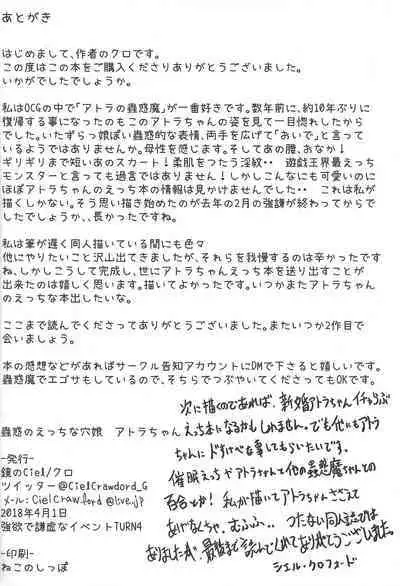 あとがき
はじめまして、作者のクロです。
この度はこの本をご購入くださりありがとうございました。
いかがでしたでしょうか。
私はOCGの中で「アトラの蟲惑魔」が一番好きです。数年前に、約10年ぶりに
復帰する事になったのもこのアトラちゃんの姿を見て一目惚れしたから
でした。いたずらっ娘ぽい蟲惑的な表情、両手を広げて「おいで」と言って
いるようではありませんか。母性を感じます。そしてあの腰、おなか!
ギリギリまで短いあのスカート!柔肌をつたう淫紋・・ 遊戯王界最えっち
モンスターと言っても過言ではありません!しかしこんなにも可愛いのに
ほぼアトラちゃんのえっち本の情報は見かけませんでした・・ これは私が
描くしかない。そう思い描き始めたのが去年の2月の強謙が終わってからで
したでしょうか、、長かったですね。
私は筆が遅く同人描いている間にも色々
他にやりたいこと沢山出てきましたが、それらを我慢するのは辛かったです
ね、しかしこうして完成し、世にアトラちゃんえっち本を送り出すことが
出来たのは嬉しく思います。描いてよかったです。いつかまたアトラちゃん
のえっちな本出したいな。
ここまで読んでくださってありがとうございました。またいつか2作目で
会いましょう。
本の感想などがあればサークル告知アカウントにDMで下さると嬉しいです。
蟲惑魔でエゴサもしているので、そちらでつぶやいてくださってもOKです。
蟲惑のえっちな穴娘 アトラちゃん
-発行-
鏡のCiel/クロ
ツイッター@CielCrawdord_G
メール:CielCraw.ford@live.jp
2018年4月1日
強欲で謙虚なイベントTURN4
-印刷-
ねこのしっぽ
次に描くのであれば、新婚アトラちゃんイチャらぶ
えっち本になるかもしれません。でも他にもアトラ
ちゃんにドすけべな事してもらいたいです。
催眠えっちやアトラちゃんと他の蟲惑魔ちゃんとの
百合とか! 私が描いてアトラちゃんささえて
あげなくちゃ、むふふ.. つたない同人誌では
ありましたが、最後まで読んでくれてありがとうございました。
シエル・クロフォード